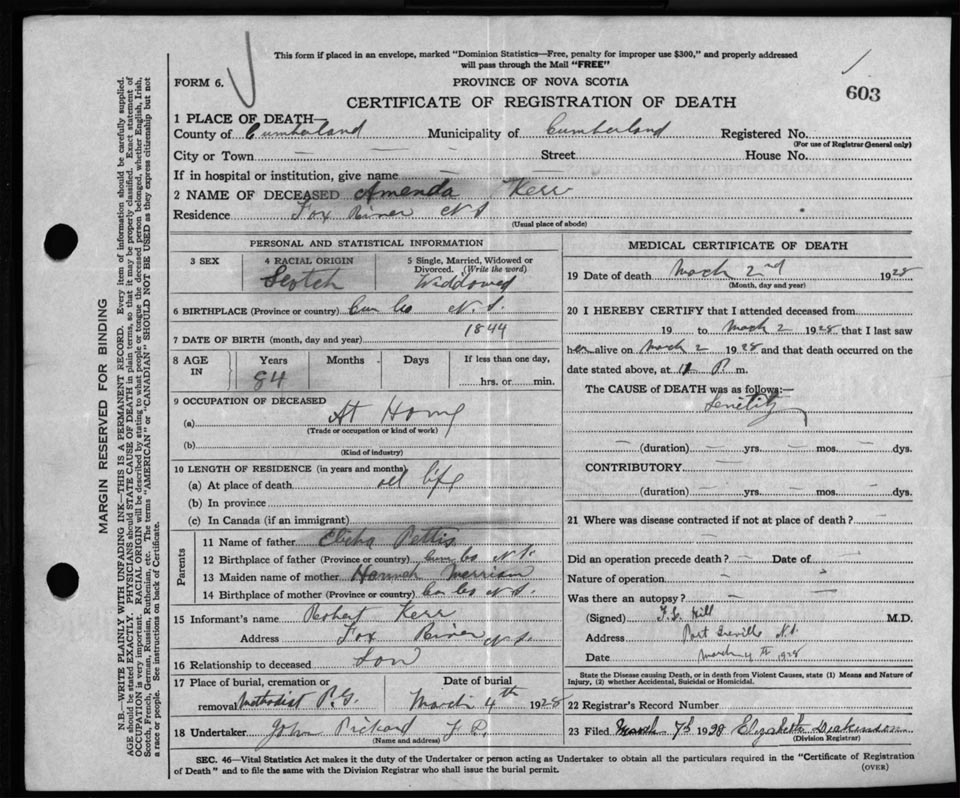 This form if placed in an envelope, marked "Dominion Statistics—Free, penalty for improper use $300," and properly addressed
will pass through the Mail "FREE"
FORM 6.
PROVINCE OF NOVA SCOTIA
603
CERTIFICATE OF REGISTRATION OF DEATH
1 PLACE OF DEATH—
County of Cumberland Municipality of Cumberland Registered No.
(For use of Registrar General only)
City or Town — — — Street House No.
If in hospital or institution, give name
2 NAME OF DECEASED Amenda Kerr
Residence Fox River N S
(Usual place of abode)
PERSONAL AND STATISTICAL INFORMATION
3 SEX
4 RACIAL ORIGIN
Scotch
5 Single, Married, Widowed or
Divorced. (Write the word)
Widdowed
6 BIRTHPLACE (Province or country) Cum Co N. S.
7 DATE OF BIRTH (month, day and year) 1844
8 AGE
IN
Years
84
Months
Days
If less than one day,
hrs. or min.
9 OCCUPATION OF DECEASED
(a) At Home
(Trade or occupation or kind of work)
(b)
(Kind of industry)
10 LENGTH OF RESIDENCE (in years and months)
(a) At place of death all life
(b) In province
(c) In Canada (if an immigrant)
Parents
11 Name of father Pettis
12 Birthplace of father (Province or country) Cum Co N. S.
13 Maiden name of mother Hannah
14 Birthplace of mother (Province or country) Cum Co N S.
15 Informant's name Robert Kerr
Address Fox River N S.
16 Relationship to deceased Son
17 Place of burial, cremation or
removal Methodist P. G.
Date of burial
March 4th 1928
18 Undertaker John Prickard
(Name and address)
MEDICAL CERTIFICATE OF DEATH
19 Date of death Mach 2nd 1928
(Month, day and year)
20 I HEREBY CERTIFY that I attended deceased from
19 to Mach 2 1928 that I last saw
her alive on Mach 2 1928 and that death occurred on the
date stated above, at P. m.
The CAUSE of DEATH was as follows:—
— (duration) — yrs. — mos. — dys.
CONTRIBUTORY —
(duration) — yrs. — mos. — dys.
21 Where was disease contracted if not at place of death? —
Did an operation precede death? — Date of —
Nature of operation —
Was there an autopsy? —
(Signed) Hill M.D.
Address Port Greville N.S.
Date March 4th 1928
State the Disease causing Death, or in death from Violent Causes, state (1) Means and Nature of
Injury, (2) whether Accidental, Suicidal or Homicidal.
22 Registrar's Record Number
23 Filed March 7th 1928 Elizabeth
(Division Registrar)
SEC. 46—Vital Statistics Act makes it the duty of the Undertaker or person acting as Undertaker to obtain all the particulars required in the "Certificate of Registration
of Death" and to file the same with the Division Registrar who shall issue the burial permit.
(OVER)
MARGIN RESERVED FOR BINDING
N.B.—WRITE PLAINLY WITH UNFADING INK—THIS IS A PERMANENT RECORD. Every item of information should be carefully supplied.
AGE should be stated EXACTLY. PHYSICIANS should STATE CAUSE OF DEATH in plain terms, so that it may be properly classified. Exact statement of
OCCUPATION is very important. RACIAL ORIGIN will be described by stating to what people or tongue the deceased person belonged, whether English, Irish,
Scotch, French, German, Russian, Ruthenian, etc. The terms "AMERICAN" or "CANADIAN" SHOULD NOT BE USED as they express citizenship but not
a race or people. See instructions on back of Certificate.